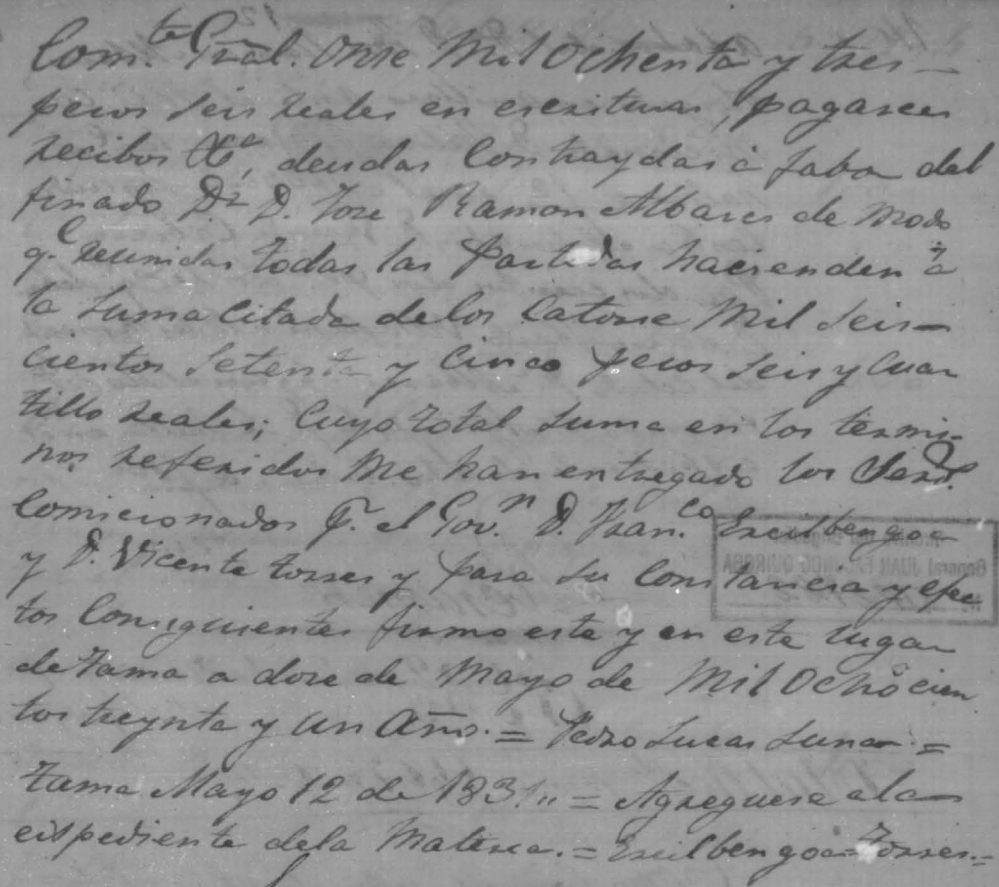 Com.te Gral. Onse Mil Ochenta y tres
pesos seis reales en escrituras, pagarees
recibos &a, deudas Contraydas à fabor del
finado Dr D. Jose Ramon Albares de modo
q.e reunidas todas las Partidas hacienden à
la suma Citada delos Catorse Mil seis-
cientos setenta y Cinco pesos seis y cuar
tillo reales; Cuyo total suma en los termi-
nos referidos Me han entregado los
Comicionados P.r el Gov.n D. Fran.co Escilbengoa
y D. Vicente torres y para su Constancia y efec
tos Consiguientes firmo este y en este lugar
de tama a dose de Mayo de Mil Ochocien
tos treynta y un Años. = Pedro Lucas Luna =
Tama Mayo 12 de 1831,, = Agreguese ala
espediente dela Materia. = Escilbengoa = Torres. =
General JUAN FACUNDO QUIROGA